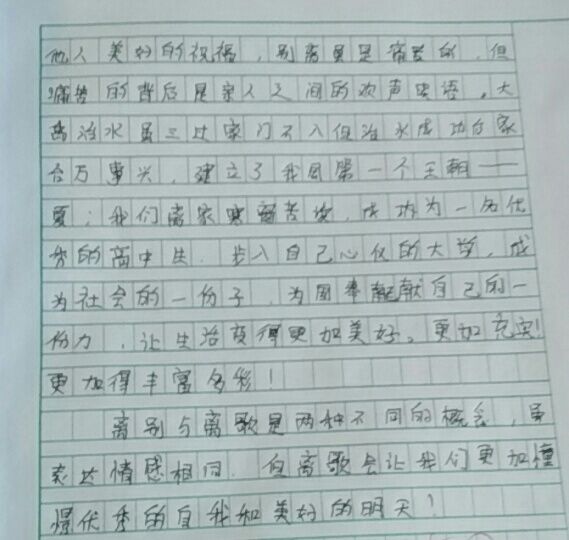 他人美好的祝福,别离虽是痛苦的,但
痛苦的背后是亲人之间的欢声笑语。大
禹治水虽三过家门不入但治水成功台家
合万事兴,建立了我国第一个王朝——
夏;我们离家寒窗苦读,成功为一名优
秀的高中生.步入自己心仪的大学,成
为社会的一份子,为国奉献自己的一
份力,让生活变得更加美好。更加充实!
更加得丰富多彩!
离别与离歌是两种不同的概念,虽
表达情感相同.但离歌会让我们更加憧
憬优秀的自我和美好的明天!